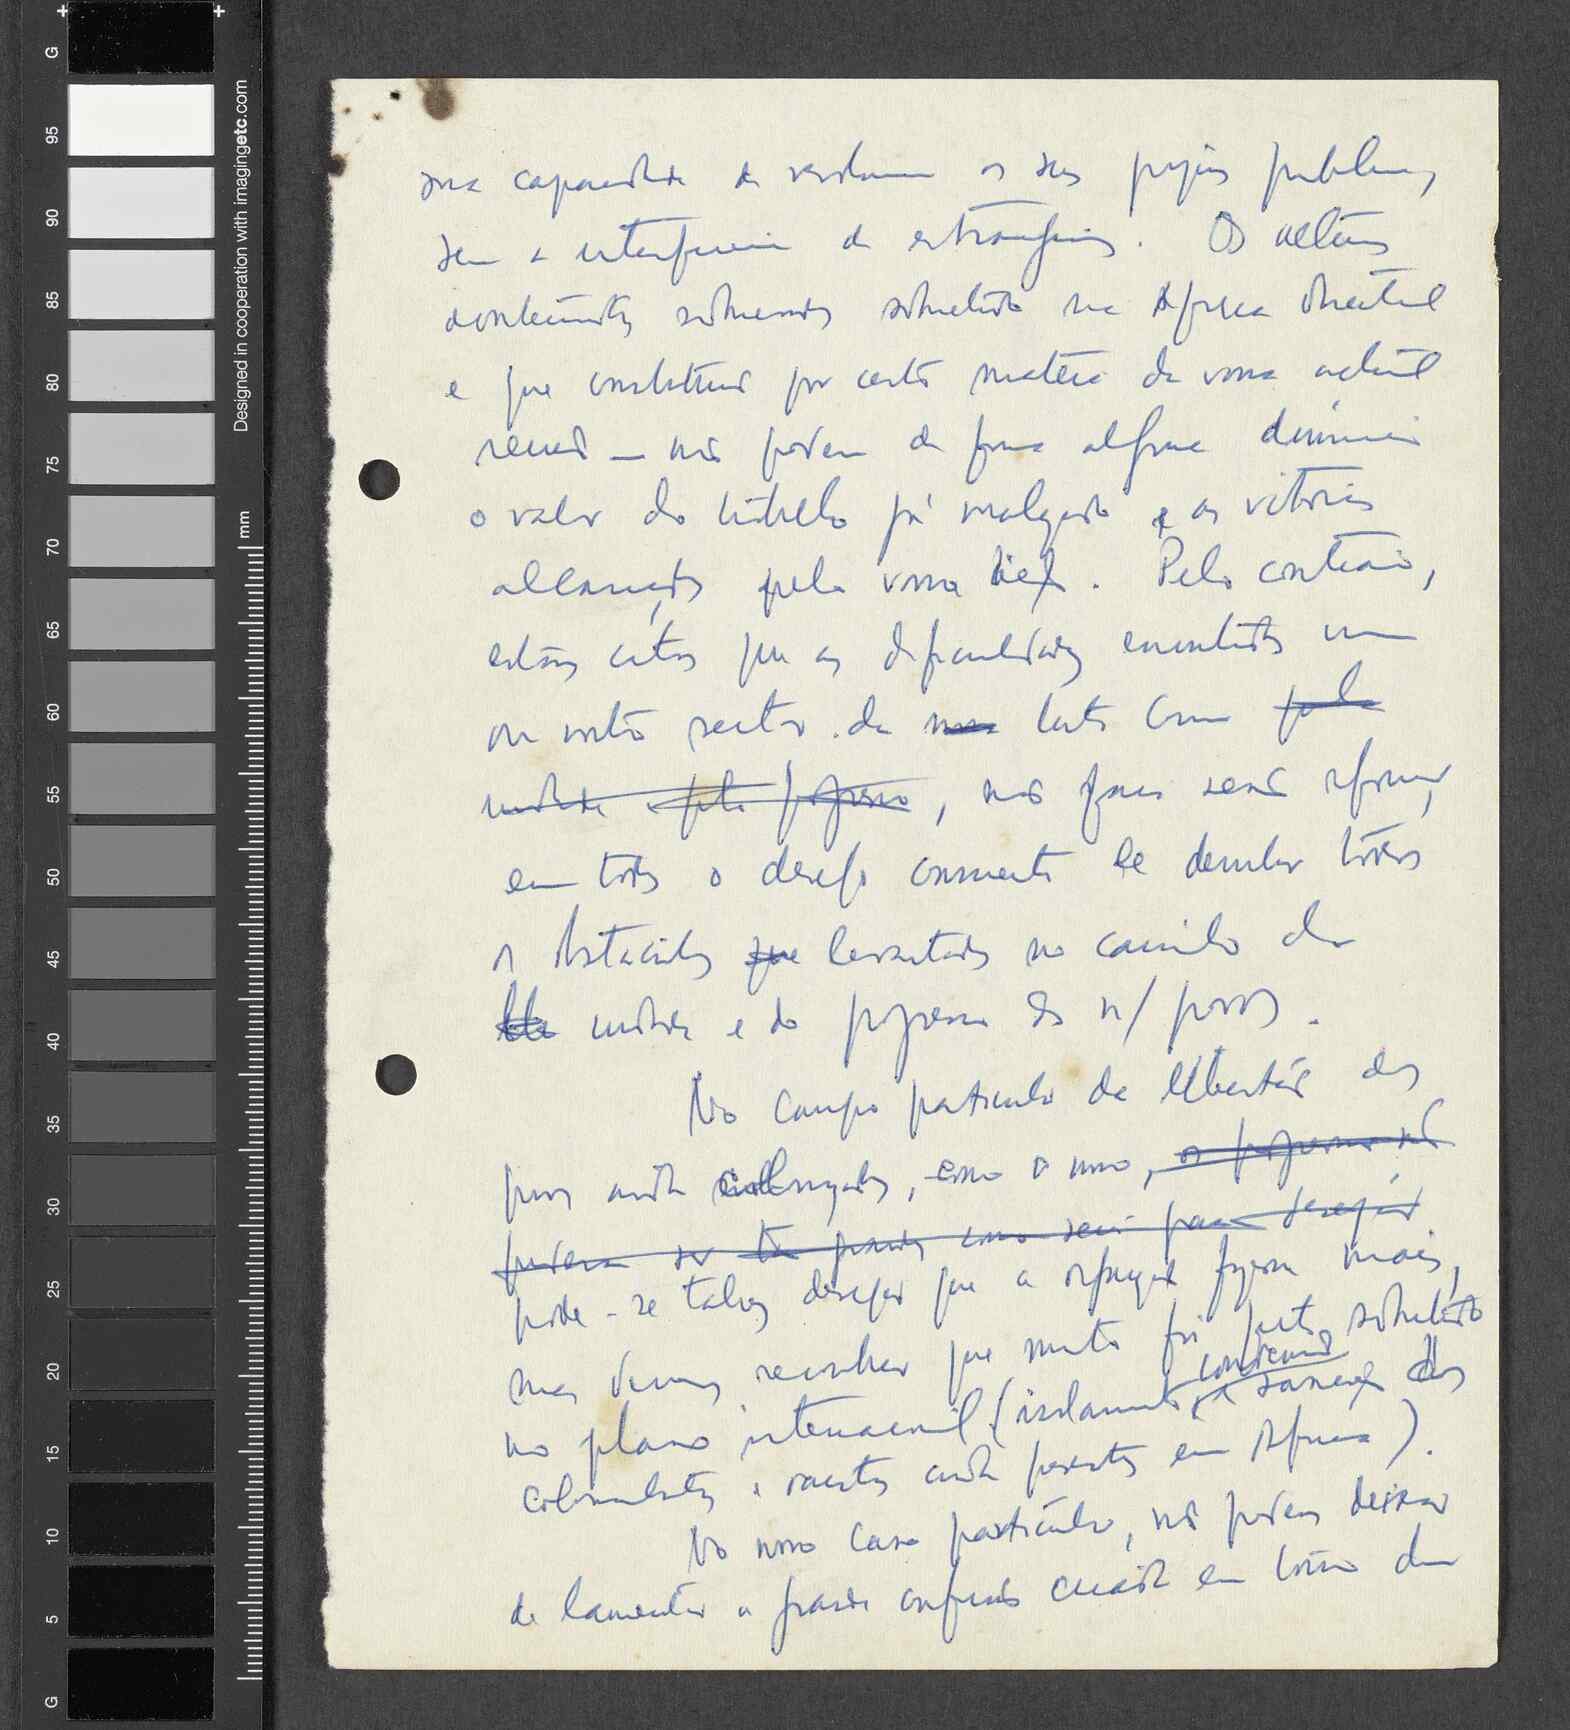 G
95
90
85
80
75
70
65
60
55
50
45
40
35
30
25
20
15
10
5
G
Designed in cooperation with imagingetc.com
mm
sua capacidade de resolverem os seus próprios problemas,
sem a interferência de estrangeiros. Os últimos
acontecimentos sobretudo na África
e que constituem por certo matéria da vossa actual
reunião — não podem de forma alguma diminuir
o valor do trabalho já realizado e as vitórias
alcançadas pela vossa . Pelo contrário,
estamos certos que as dificuldades encontradas num
ou noutro sector da nossa luta comum pela
unidade e pelo progresso, não farão senão reforçar,
em todos o desejo de derrubar todos
os obstáculos que levantados no caminho da
unidade e do progresso dos n/ povos.
No campo particular da libertação dos
povos ainda colonizados, como o nosso, os progressos não
puderam ser tão grandes como seria para desejar
pode-se talvez desejar que a organização fizesse mais,
mas devemos reconhecer que muito foi feito, sobretudo
no plano internacional (isolamento, condenação e dos
colonialistas e racistas ainda presentes em África).
No nosso caso particular, não podemos deixar
de lamentar a grande confusão criada em torno da